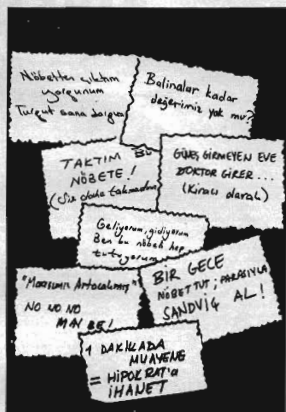 Nöbetten çıktım
yorgunum
Turgut sana dargınım
Balinalar kadar
değerimiz yok mu?
TAKTIM BU
NÖBETE!
(Siz de
GÜNEŞ GİRMEYEN EVE
DOKTOR GİRER...
(Kiracı olarak)
Geliyorum, gidiyorum
Ben bu nöbeti hep
tutuyorum
"Maaşımız Artacakmış"
NO NO NO
MAY BE!
BİR GECE
NÖBET TUT; PARASIYLA
SANDVİÇ AL!
1 DAKİKADA
MUAYENE
= HİPOKRAT'a
İHANET